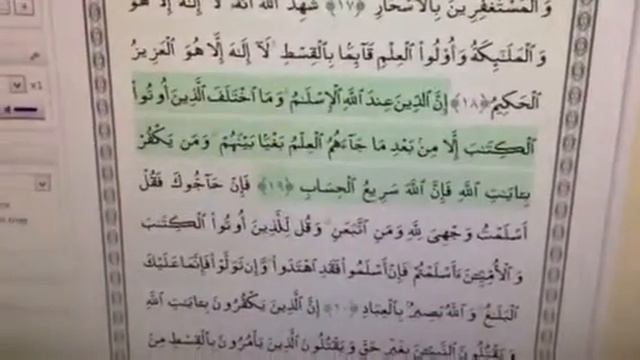 وَالْمُسْتَغْفِرِينَ بِالْأَسْحَارِ ﴿١٧﴾ شَهِدَ اللَّهُ أَنَّهُ لَا إِلَٰهَ إِلَّا هُوَ
وَالْمَلَٰئِكَةُ وَأُولُوا الْعِلْمِ قَائِمًا بِالْقِسْطِ لَا إِلَٰهَ إِلَّا هُوَ الْعَزِيزُ
الْحَكِيمُ ﴿١٨﴾ إِنَّ الدِّينَ عِندَ اللَّهِ الْإِسْلَٰمُ وَمَا اخْتَلَفَ الَّذِينَ أُوتُوا
الْكِتَٰبَ إِلَّا مِن بَعْدِ مَا جَاءَهُمُ الْعِلْمُ بَغْيًا بَيْنَهُمْ وَمَن يَكْفُرْ
بِـَٔايَٰتِ اللَّهِ فَإِنَّ اللَّهَ سَرِيعُ الْحِسَابِ ﴿١٩﴾ فَإِنْ حَاجُّوكَ فَقُلْ
أَسْلَمْتُ وَجْهِيَ لِلَّهِ وَمَنِ اتَّبَعَنِ وَقُل لِّلَّذِينَ أُوتُوا الْكِتَٰبَ
وَالْأُمِّيِّينَ ءَأَسْلَمْتُمْ فَإِنْ أَسْلَمُوا فَقَدِ اهْتَدَوا وَّإِن تَوَلَّوْا فَإِنَّمَا عَلَيْكَ
الْبَلَٰغُ وَاللَّهُ بَصِيرٌ بِالْعِبَادِ ﴿٢٠﴾ إِنَّ الَّذِينَ يَكْفُرُونَ بِـَٔايَٰتِ اللَّهِ
وَيَقْتُلُونَ النَّبِيِّينَ بِغَيْرِ حَقٍّ وَيَقْتُلُونَ الَّذِينَ يَأْمُرُونَ بِالْقِسْطِ مِنَ
x1